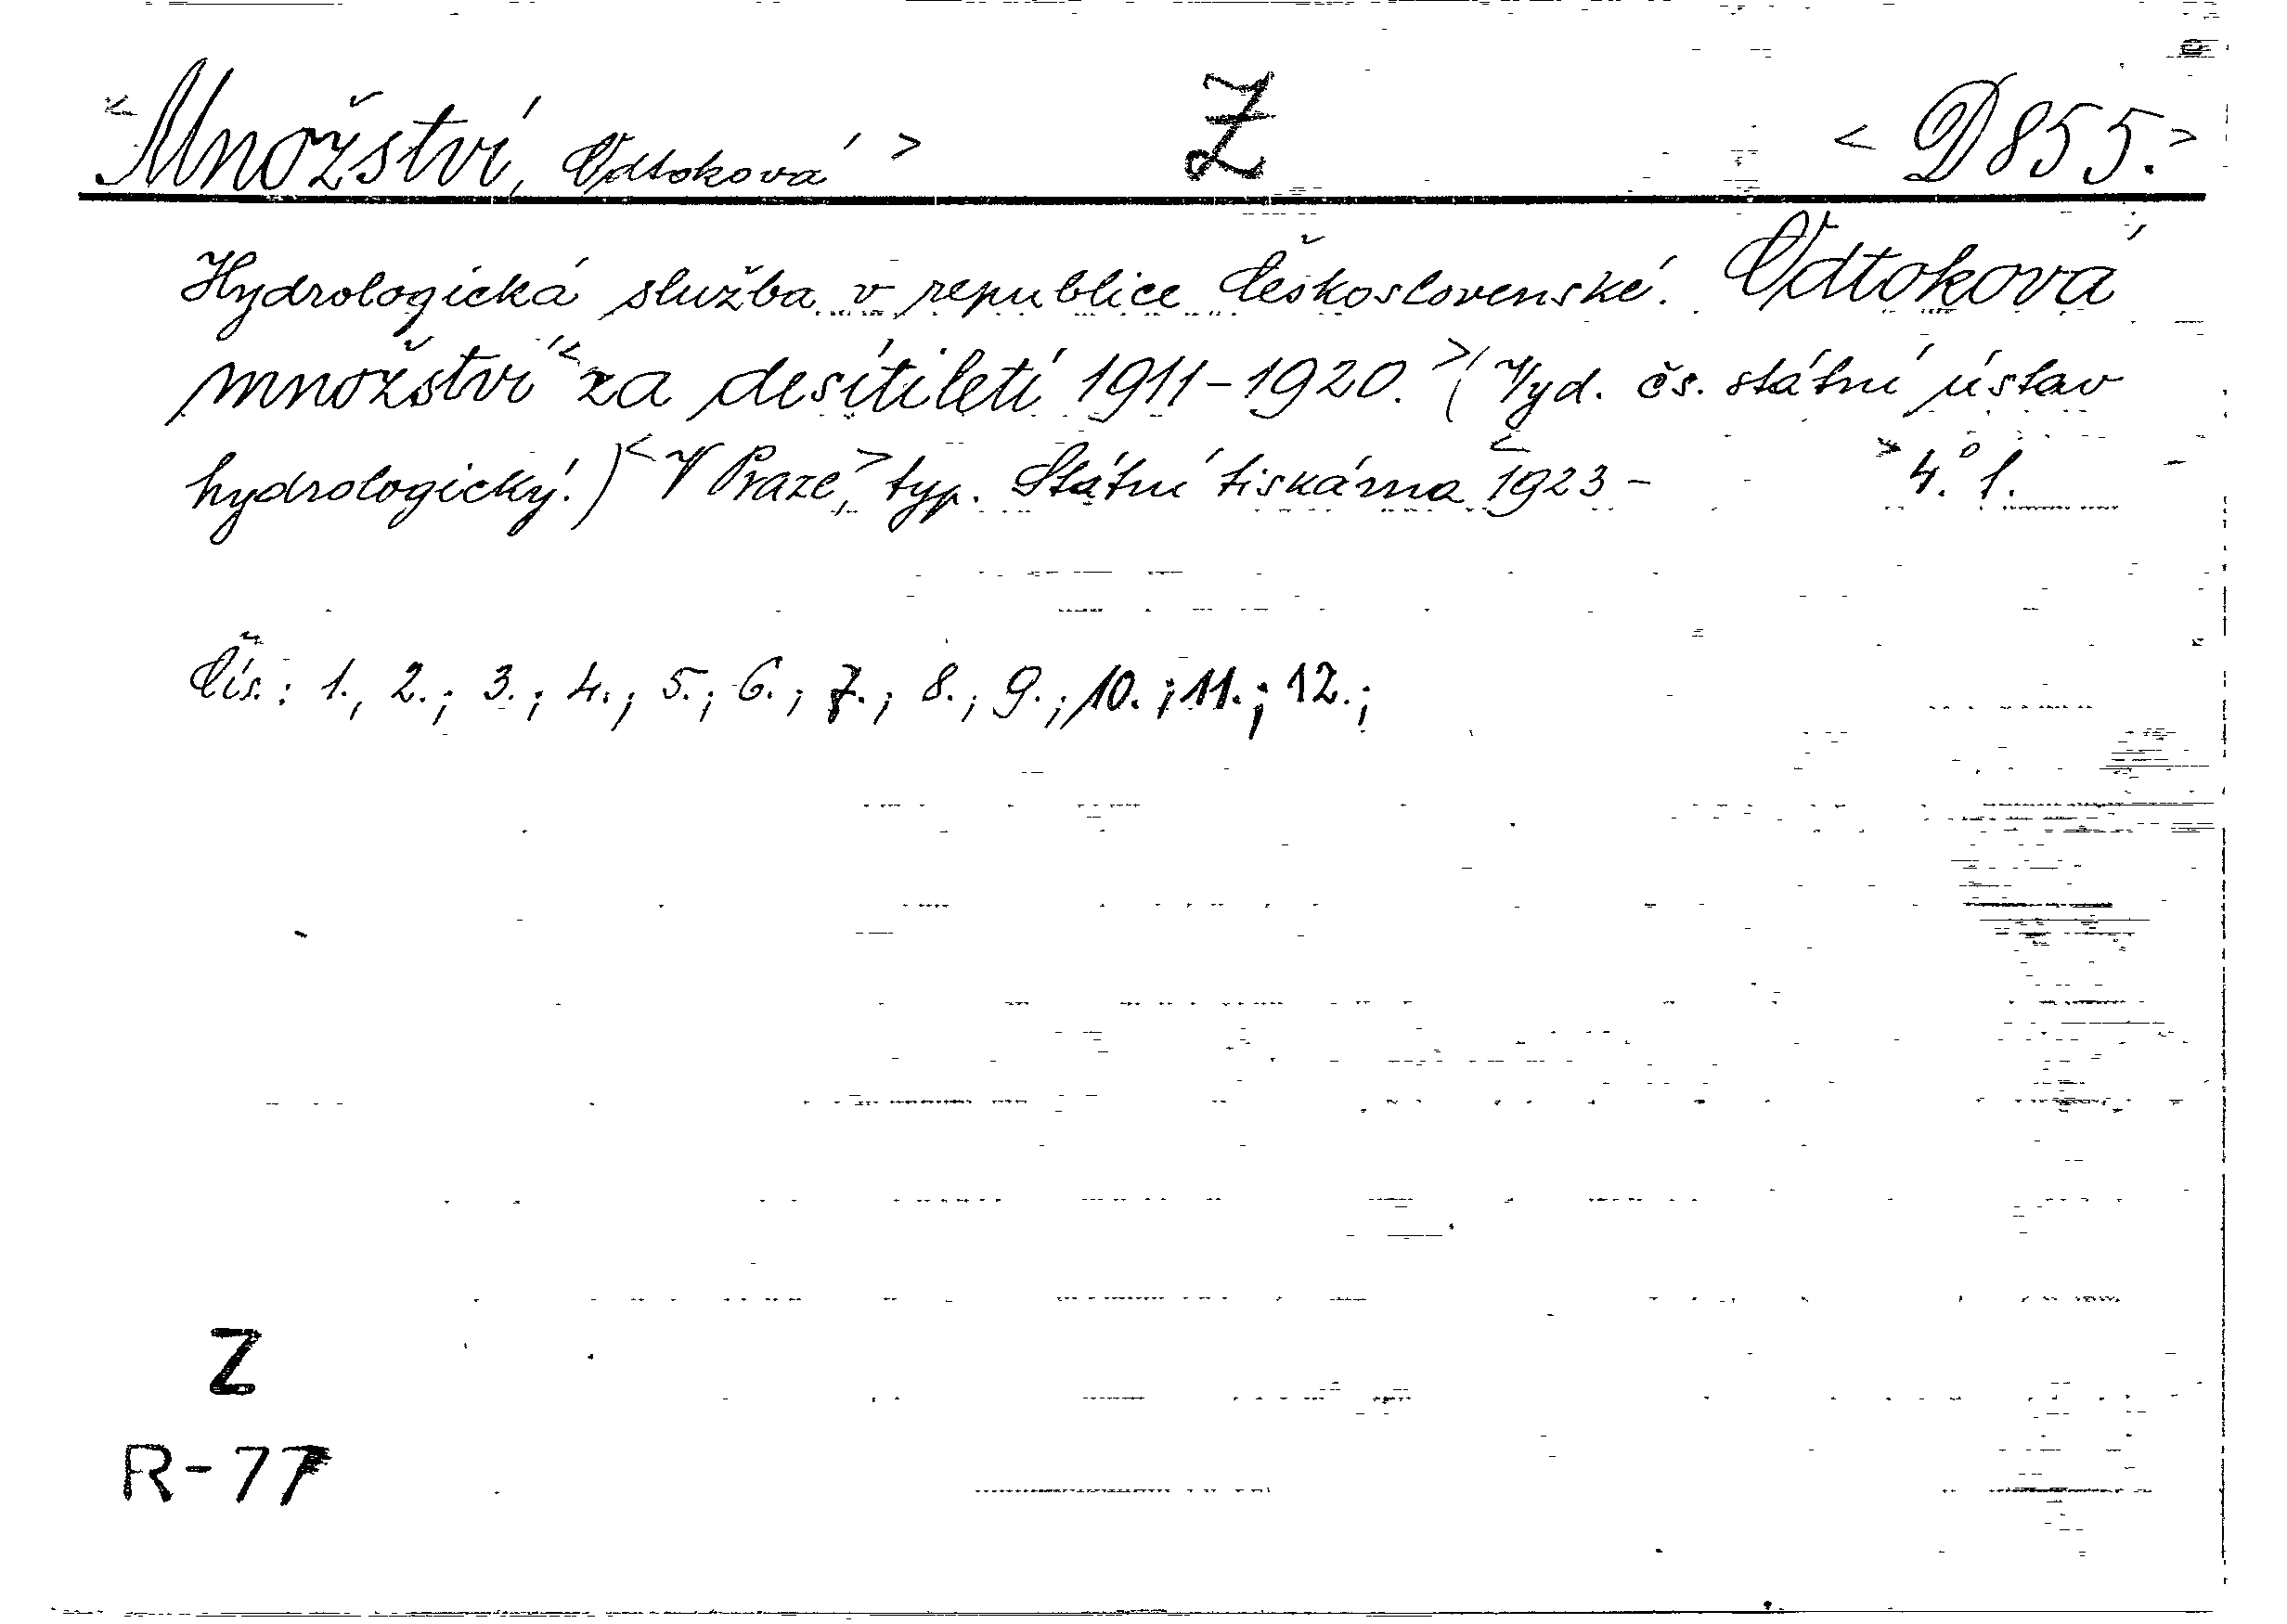 <Množství, Odtoková> Z <D 855.>
Hydrologická služba v republice Československé. Odtoková
množství < za desítiletí 1911-1920. > (Vyd. čs. státní ústav
hydrologický.) < V Praze, > typ. Státní tiskárna < 1923 - > 4.° 1.
Čís.: 1., 2.; 3.; 4.; 5.; 6.; 7.; 8.; 9.; 10.; 11.; 12.;
Z
R-77